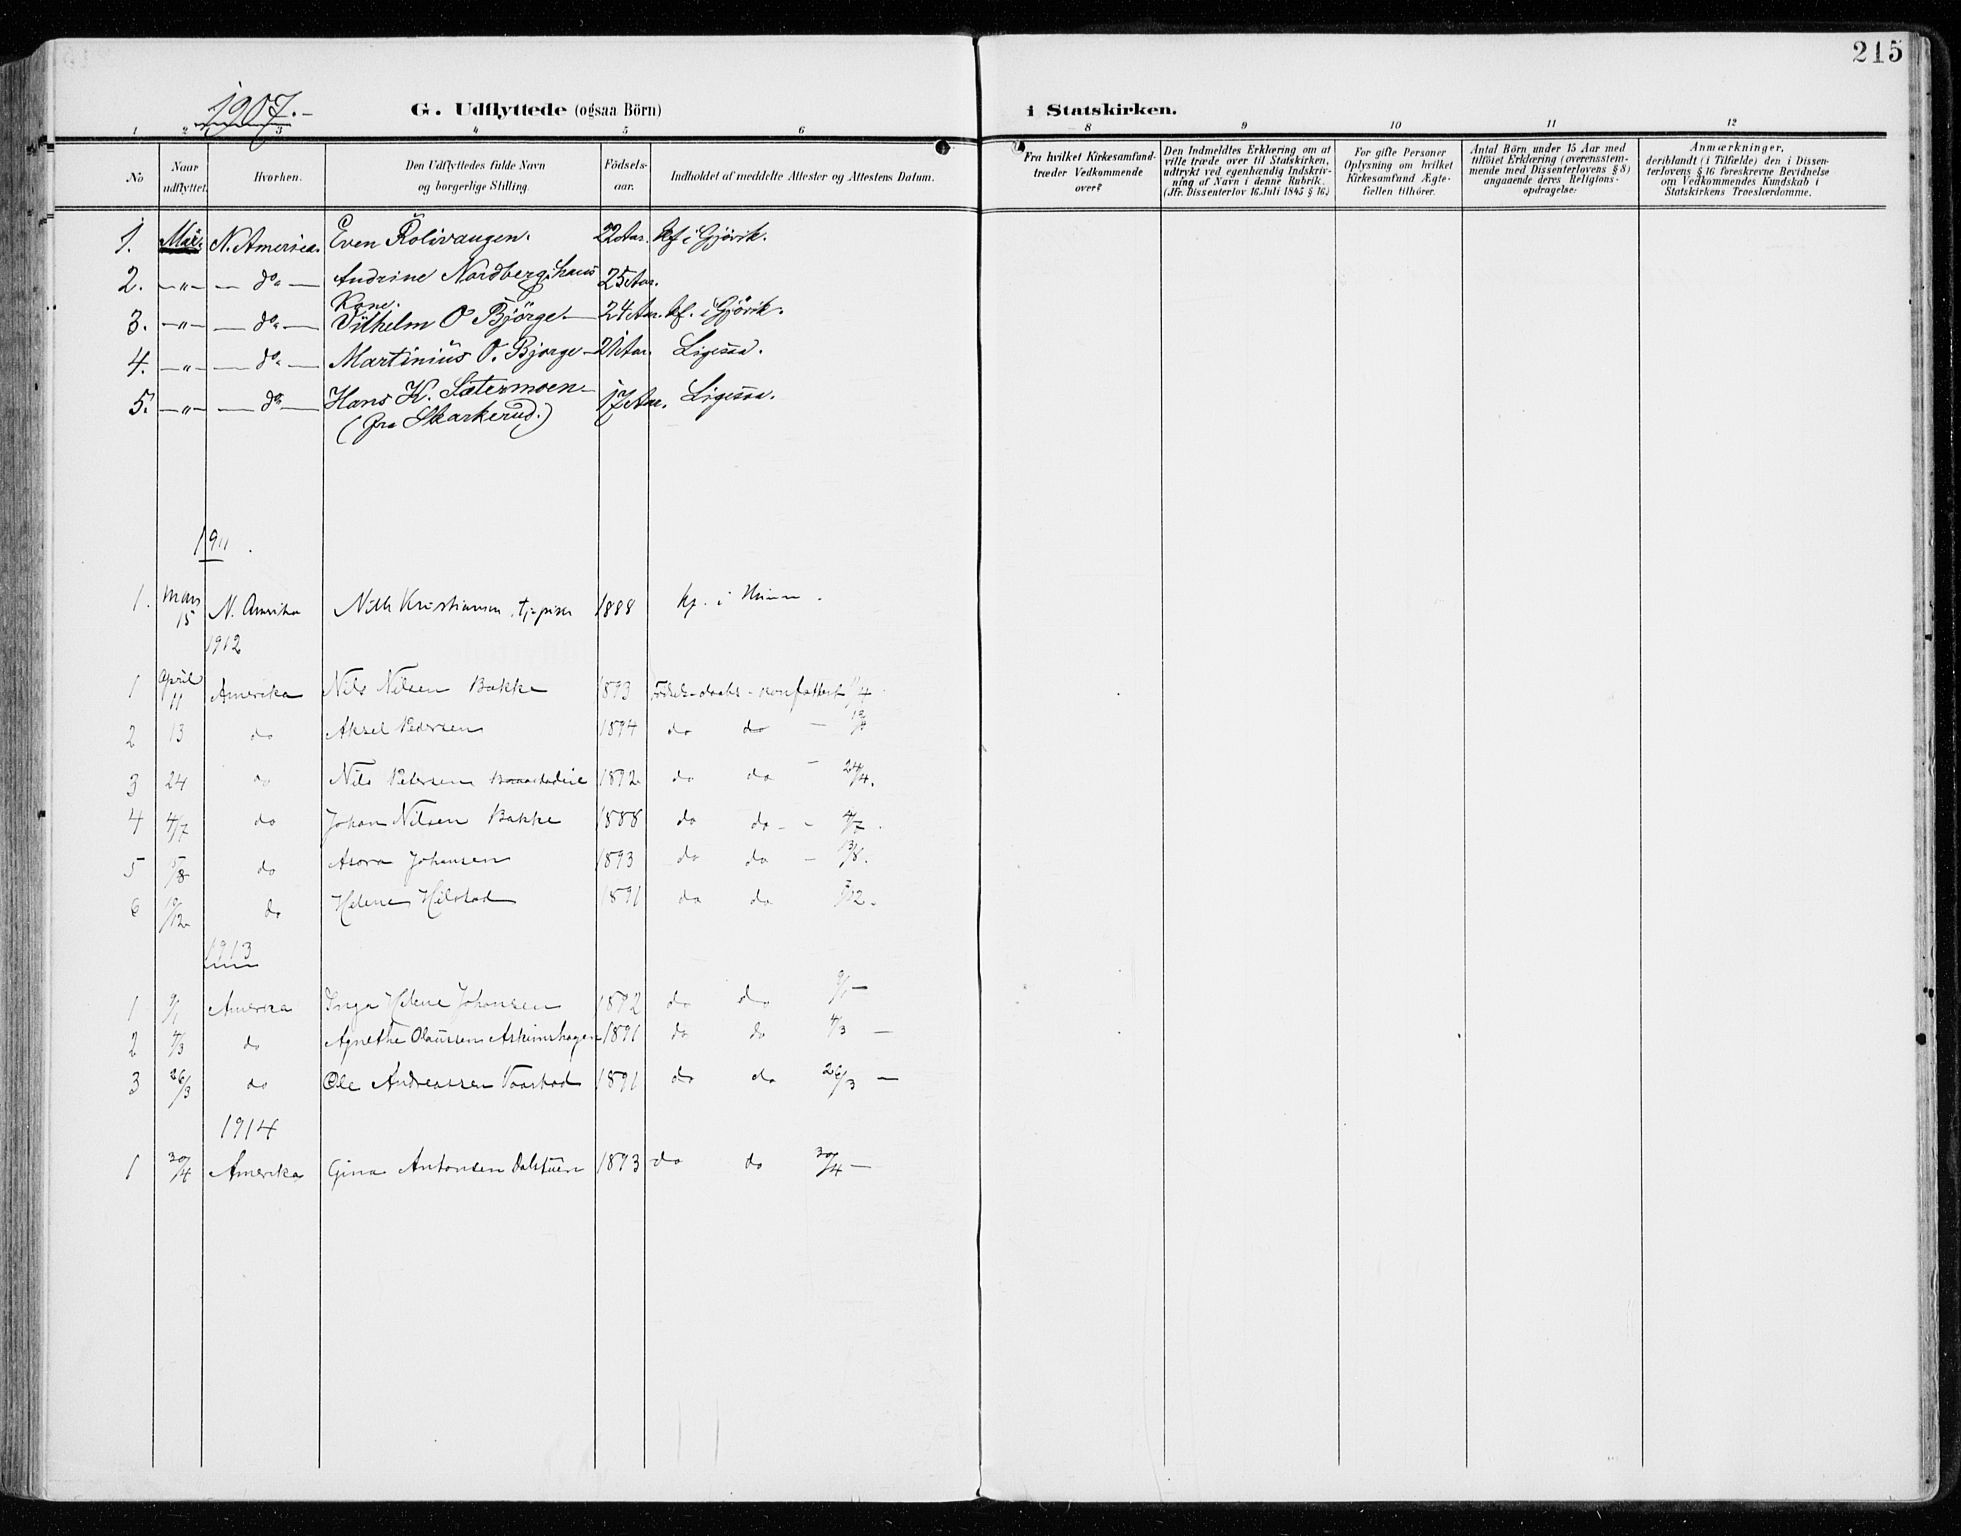 215
1907.-
G. Udflyttede (ogsaa Börn)
i Statskirken.
1 2 3 4 5 6
8 9 10 11 12
No
Naar udflyttet.
Hvorhen.
Den Udflyttedes fulde Navn
og borgerlige Stilling.
Födsels-
aar.
Indholdet af meddelte Attester og Attestens Datum.
Fra hvilket Kirkesamfund
træder Vedkommende
over?
Den Indmeldtes Erklæring om at
ville træde over til Statskirken,
udtrykt ved egenhændig Indskriv-
ning af Navn i denne Rubrik.
(Jfr. Dissenterlov 16. Juli 1845 § 16.)
For gifte Personer
Oplysning om hvilket
Kirkesamfund Ægte-
fællen tilhörer.
Antal Börn under 15 Aar med
tilföiet Erklæring (overensstem-
mende med Dissenterlovens § 8)
angaaende deres Religions-
opdragelse.
Anmærkninger,
deriblandt (i Tilfælde) den i Dissen-
terlovens § 16 foreskrevne Bevidnelse
om Vedkommendes Kundskab i
Statskirkens Troeslærdomme.
1. Mai. N. America. Even Rolivangen. 22 Aar. kf i Gjövik.
2. -"- - do - Andrine Nordberg, hans 25 Aar.
Kone.
3. -"- - do - Vilhelm O Björge - 24 Aar. kf. i Gjövik.
4. -"- - do - Martinius O. Bjorge - 21 Aar. Ligesaa.
5. -"- - do - Hans K. Sætermoen - 17 Aar. Ligesaa.
(fra Skarkerud.)
1911.
1. Mars 15 N. Amerika Kristiansen 1888 kf. i
1912
1 April 11 Amerika Nils Nilsen Bakke 1893 Födsels-daabs-konf.attest 11/4.
2 13 do Aksel Pedersen 1894 do do - 13/4
3 24 do Nils Petersen 1892 do do - 24/4.
4 4/7 do Johan Nilsen Bakke 1888 do do - - 4/7.
5 5/8 do Johansen 1893 do do - 13/8.
6 10/12 do Helene 1891 do do /12.
1913
1 9/1 America Inga Helene Johansen 1892 do do 9/1 -
2 4/3 do Agnethe Olaussen Askimshagen 1891 do do 4/3 -
3 26/3 do Ole Andreassen 1891 do do 26/3 -
1914
1 30/4 Amerika Gina Antonsen Dalstuen 1893 do do 30/4 -